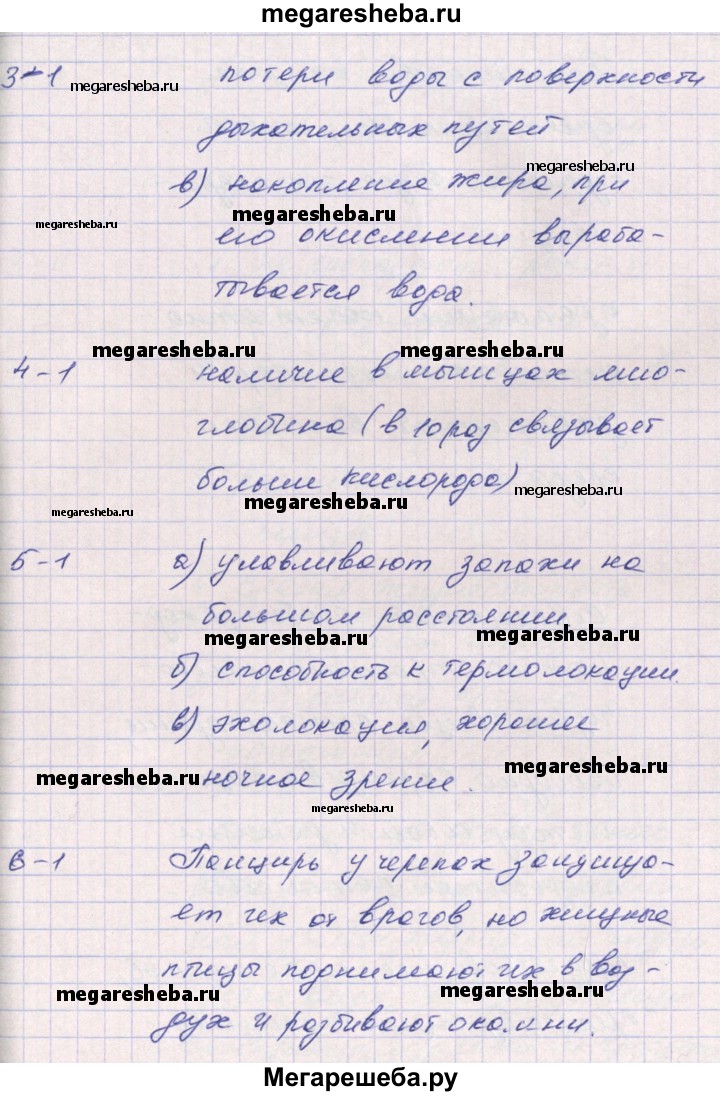 megaresheba.ru
3-1 потери воды с поверхности
megaresheba.ru
дыхательных путей
megaresheba.ru
в) накопление жира, при
megaresheba.ru
megaresheba.ru
его окислении выраба-
тывается вода.
megaresheba.ru
megaresheba.ru
4-1 наличие в мышцах мио-
глобина (в 10 раз связывает
больше кислорода)
megaresheba.ru
megaresheba.ru
megaresheba.ru
5-1 а) улавливают запахи на
большом расстоянии
megaresheba.ru
megaresheba.ru
б) способность к термолокации.
в) эхолокация, хорошее
megaresheba.ru
megaresheba.ru
ночное зрение.
megaresheba.ru
6-1 Панцирь у черепах защища-
ет их от врагов, но хищные
птицы поднимают их в воз-
megaresheba.ru
megaresheba.ru
дух и разбивают о камни.
Мегарешеба.ру